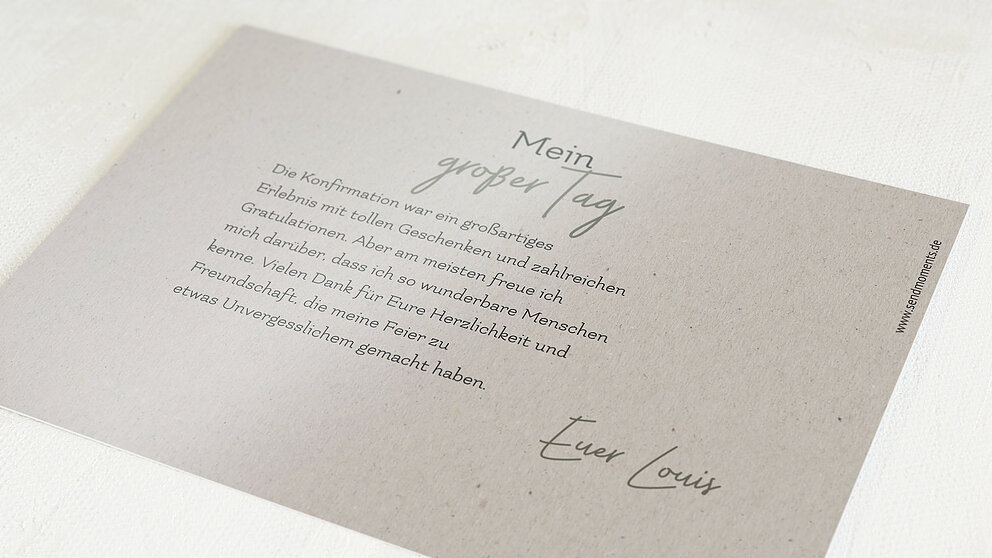 Mein
großer Tag
Die Konfirmation war ein großartiges
Erlebnis mit tollen Geschenken und zahlreichen
Gratulationen. Aber am meisten freue ich
mich darüber, dass ich so wunderbare Menschen
kenne. Vielen Dank für Eure Herzlichkeit und
Freundschaft, die meine Feier zu
etwas Unvergesslichem gemacht haben.
Euer Louis
www.sendmoments.de